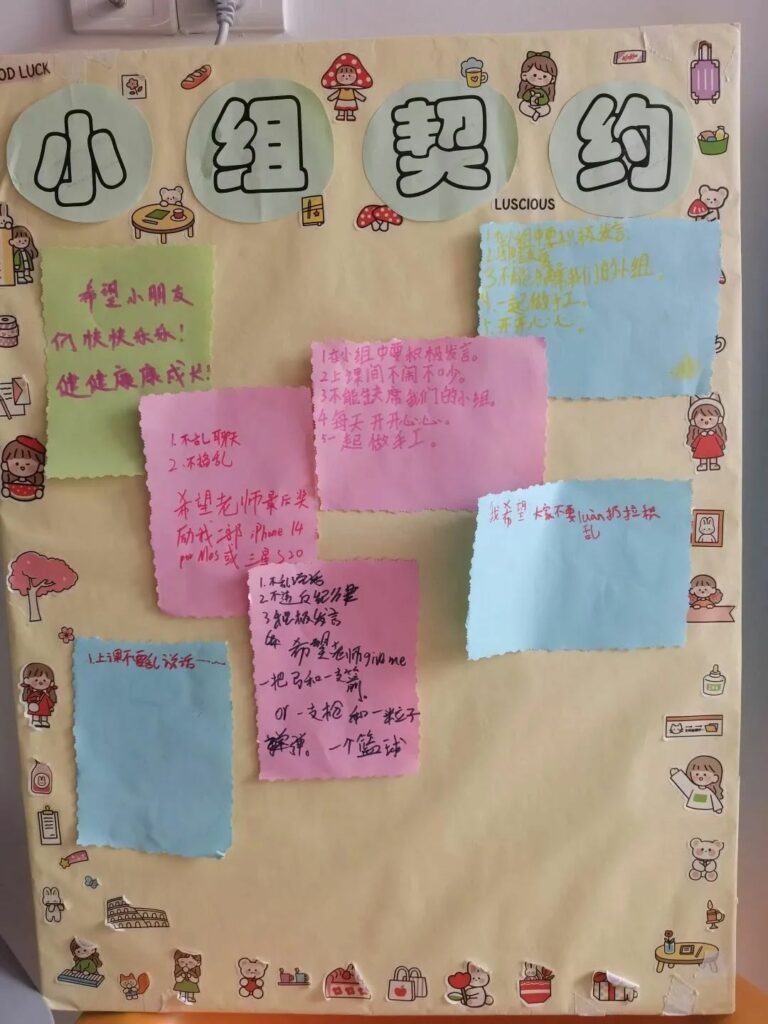 OD LUCK
小组契约
LUSCIOUS
希望小朋友
们快快乐乐!
健健康康成长!
1.在小组中要积极发言.
3.不能失席我们的小组.
4.一起做手工。
5.开开心心。
1在小组中要积极发言。
2上课间不闹不吵。
3不能失席我们的小组。
4每天开开心心。
5一起做手工。
1.不乱聊天
2.不捣乱
希望老师最后奖
励我二部 iPhone 14
por Mas或三星S20
我希望大家不要luàn扔垃积
乱
1.不乱说话
2.不违反纪律
3积极发言
希望老师give me
一把弓和一支箭。
or 一支枪和一粒子
弹。一个篮球
1.上课不要乱说话……